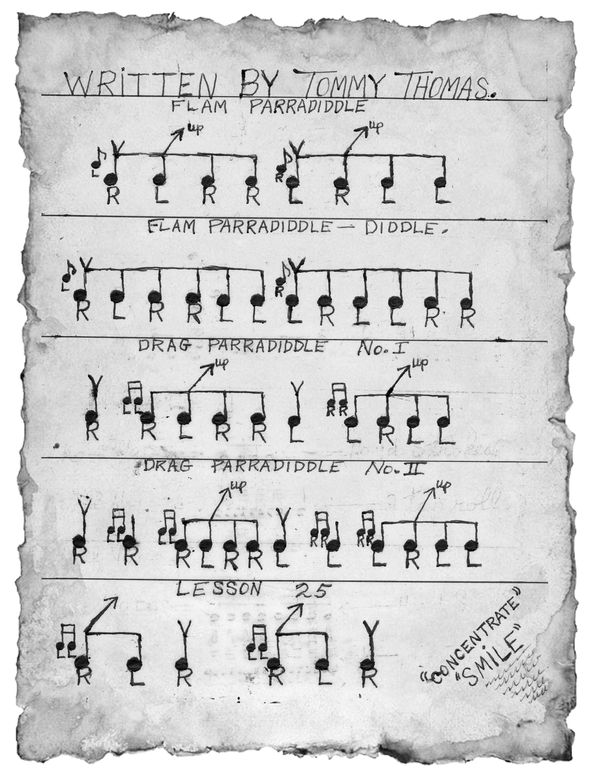 WRITTEN BY TOMMY THOMAS.
FLAM PARRADIDDLE
up up
L R L R R R L R L L
FLAM PARRADIDDLE - DIDDLE.
L R L R R L L R L R L L R R
DRAG PARRADIDDLE No. I
up up
R L L R L R R L R R L R L L
DRAG PARRADIDDLE No. II
up up
R L L R L L R L R R L R R L R R L R L L
LESSON 25
L L R L R L L R L R
"CONCENTRATE"
"SMILE"